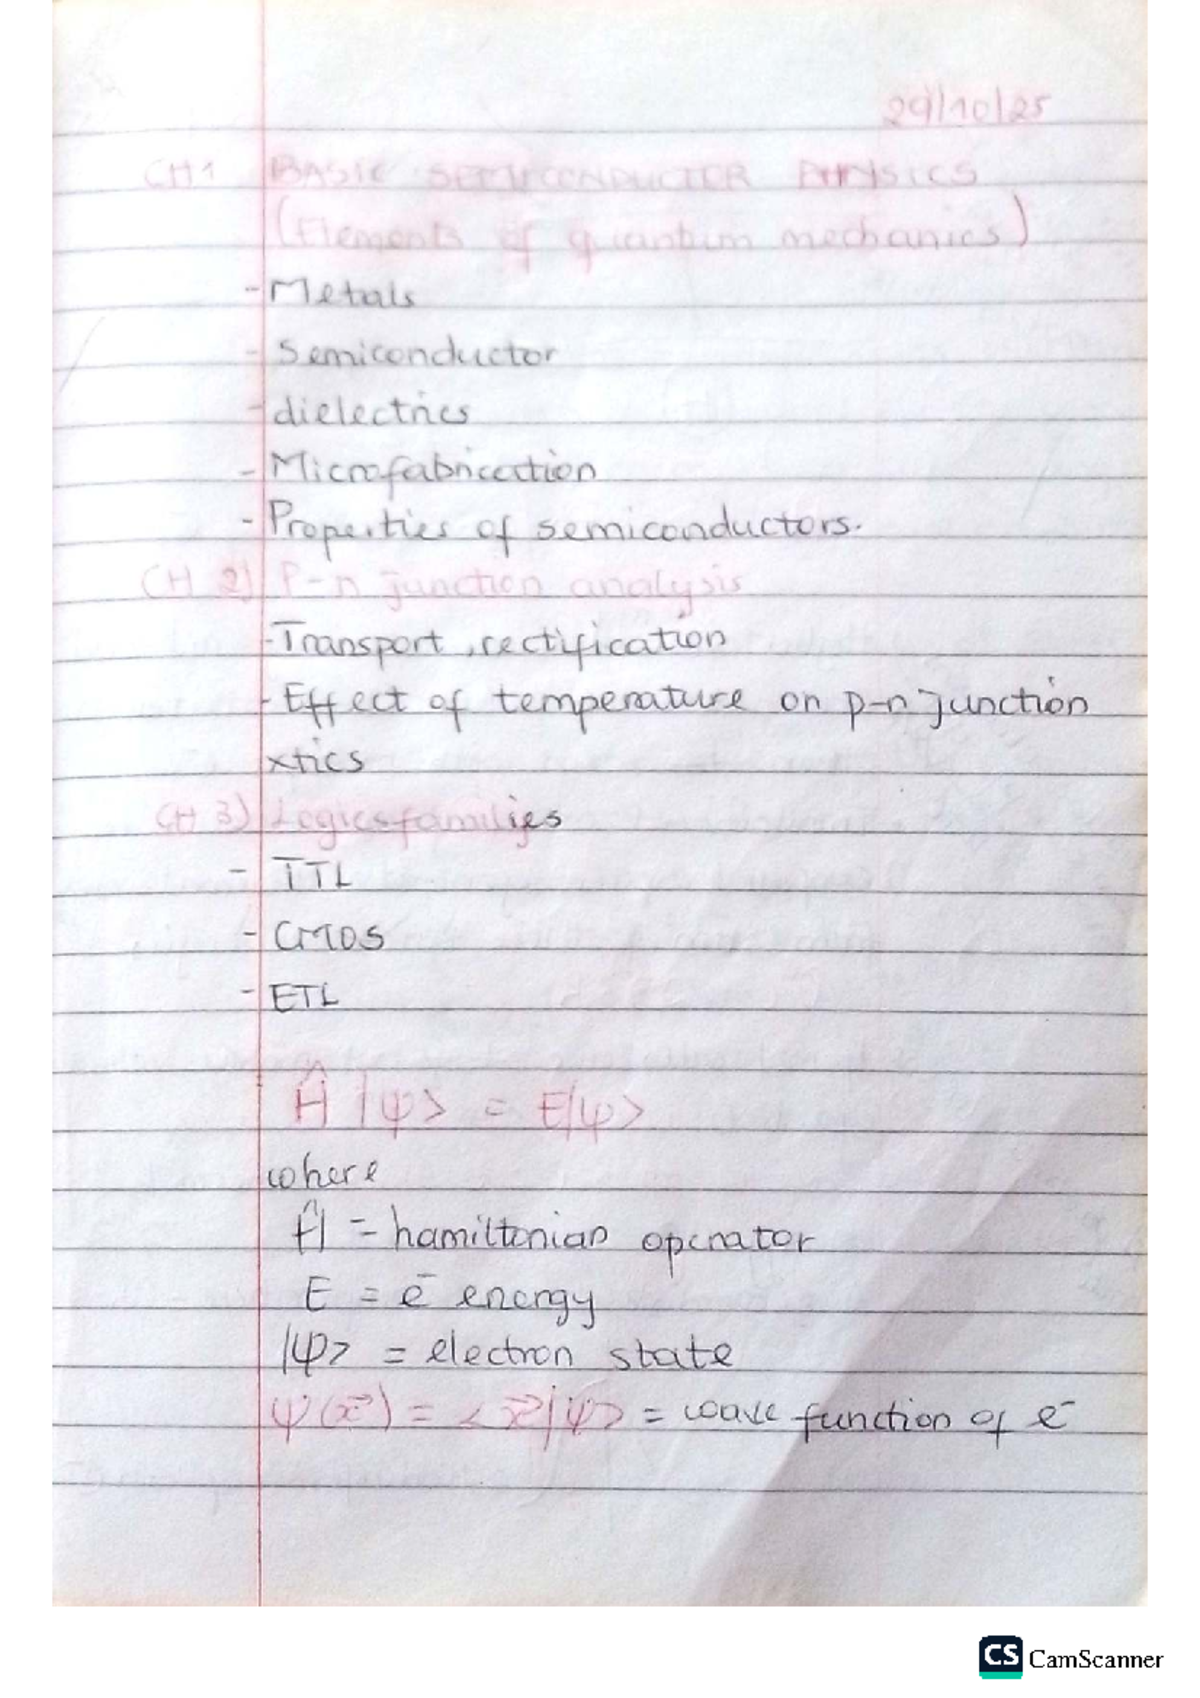 29/10/25
CH1 BASIC SEMICONDUCTOR PHYSICS
(Elements of quantum mechanics)
- Metals
- Semiconductor
- dielectrics
- Microfabrication
- Properties of semiconductors.
CH 2) P-n junction analysis
- Transport, rectification
- Effect of temperature on p-n junction
xtics
CH 3) Logics families
- TTL
- CMOS
- ETL
Ĥ |ψ> = E|ψ>
where
Ĥ = hamiltonian operator
E = e⁻ energy
|ψ> = electron state
ψ(x⃗) = <x⃗|ψ> = wave function of e⁻
CS CamScanner